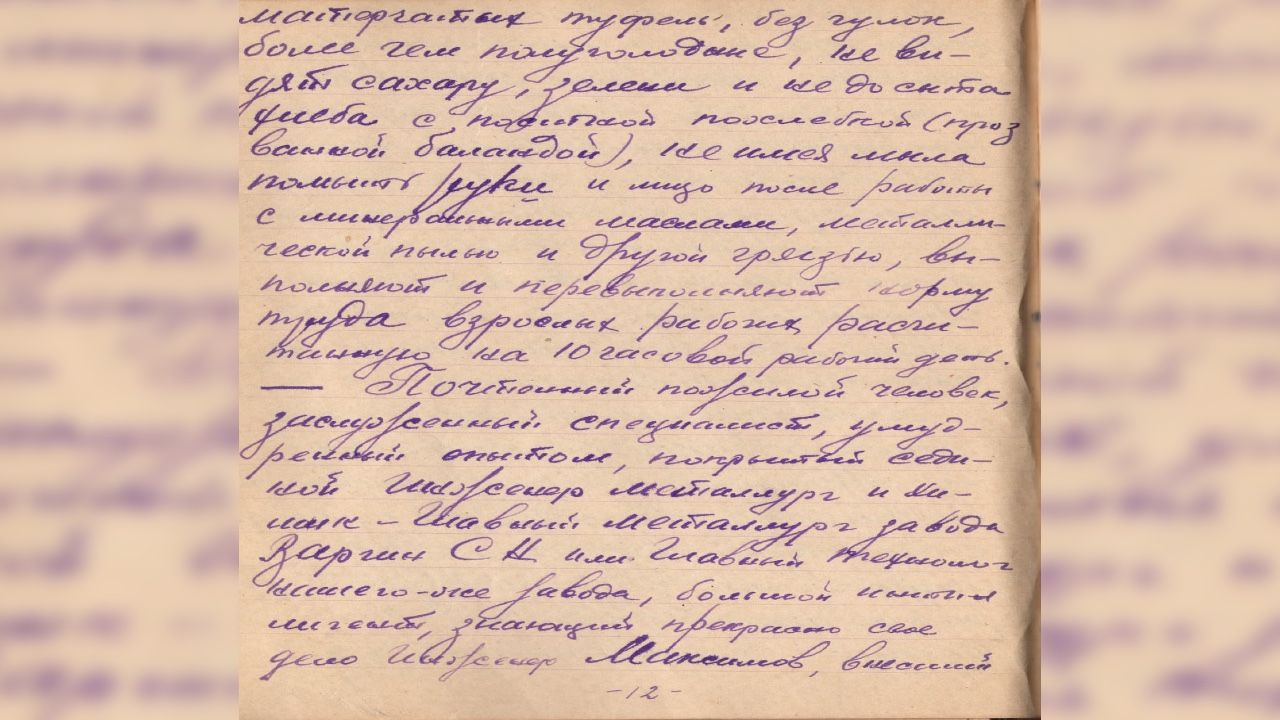 матерчатых туфель, без чулок,
более чем полуголодные, не ви-
дят сахару, зелени и не до сыта
хлеба с похлебкой (проз
ванной баландой), не имея мыла
помыть руки и лицо после работы
с минеральными маслами, металли-
ческой пылью и другой грязью, вы-
полняют и перевыполняют норму
труда взрослых рабочих, расчи-
танную на 10 часовой рабочий день.
— Почтенный пожилой человек,
заслуженный специалист, умуд-
ренный опытом, покрытый седи-
ной Инженер металлург и Хи-
мик - Главный металлург завода
Варгин С Н или Главный технолог
нашего-же завода, большой
знающий прекрасно свое
дело Инженер Максимов, высший
-12-